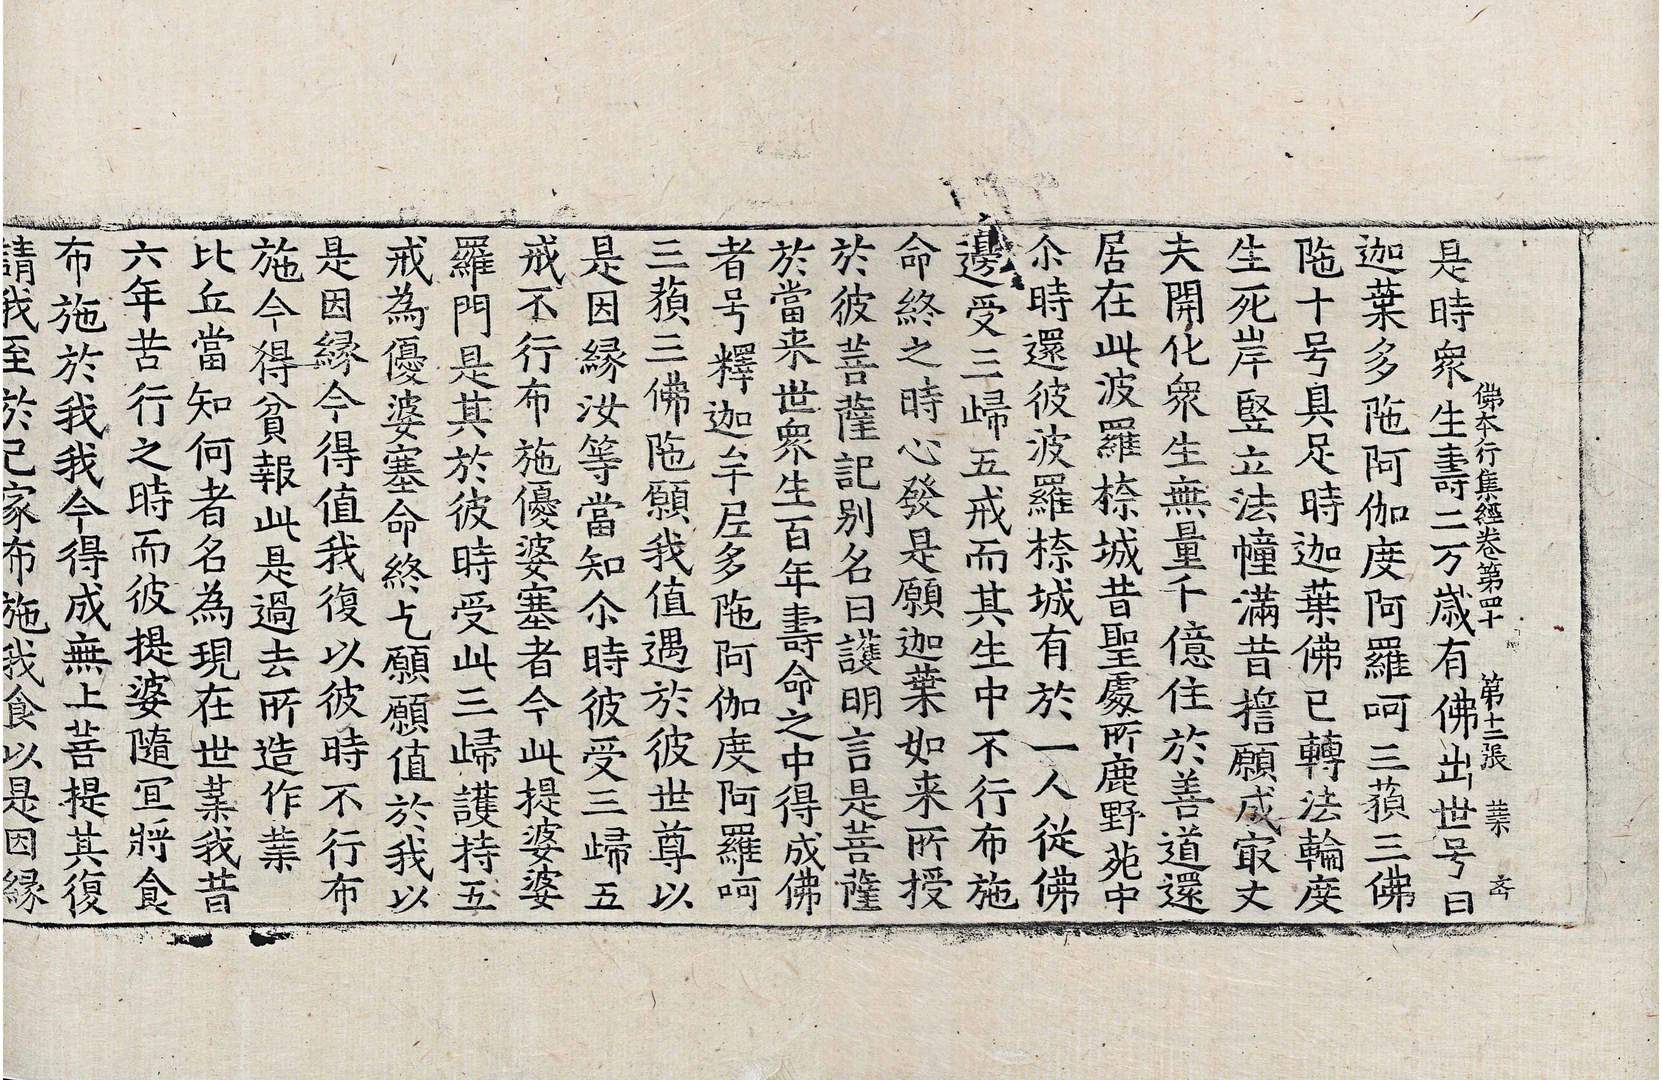 佛本行集經卷第四十　第十二張　業
是時衆生壽二万歲有佛出世号曰
迦葉多陁阿伽度阿羅呵三藐三佛
陁十号具足時迦葉佛已轉法輪度
生死岸竪立法幢滿昔擔願成㝡丈
夫開化衆生無量千億住於善道還
居在此波羅㮈城昔聖處所鹿野苑中
尒時還彼波羅㮈城有於一人從佛
邊受三歸五戒而其生中不行布施
命終之時心發是願迦葉如来所授
於彼菩薩記別名曰護明言是菩薩
於當来世衆生百年壽命之中得成佛
者号釋迦牟尼多陁阿伽度阿羅呵
三藐三佛陁願我值遇於彼世尊以
是因緣汝等當知尒時彼受三歸五
戒不行布施優婆塞者今此提婆婆
羅門是其於彼時受此三歸護持五
戒為優婆塞命終乞願願值於我以
是因緣今得值我復以彼時不行布
施今得貧報此是過去所造作業
比丘當知何者名為現在世業我昔
六年苦行之時而彼提婆隨冝將食
布施於我我今得成無上菩提其復
請我至於己家布施我食以是因緣